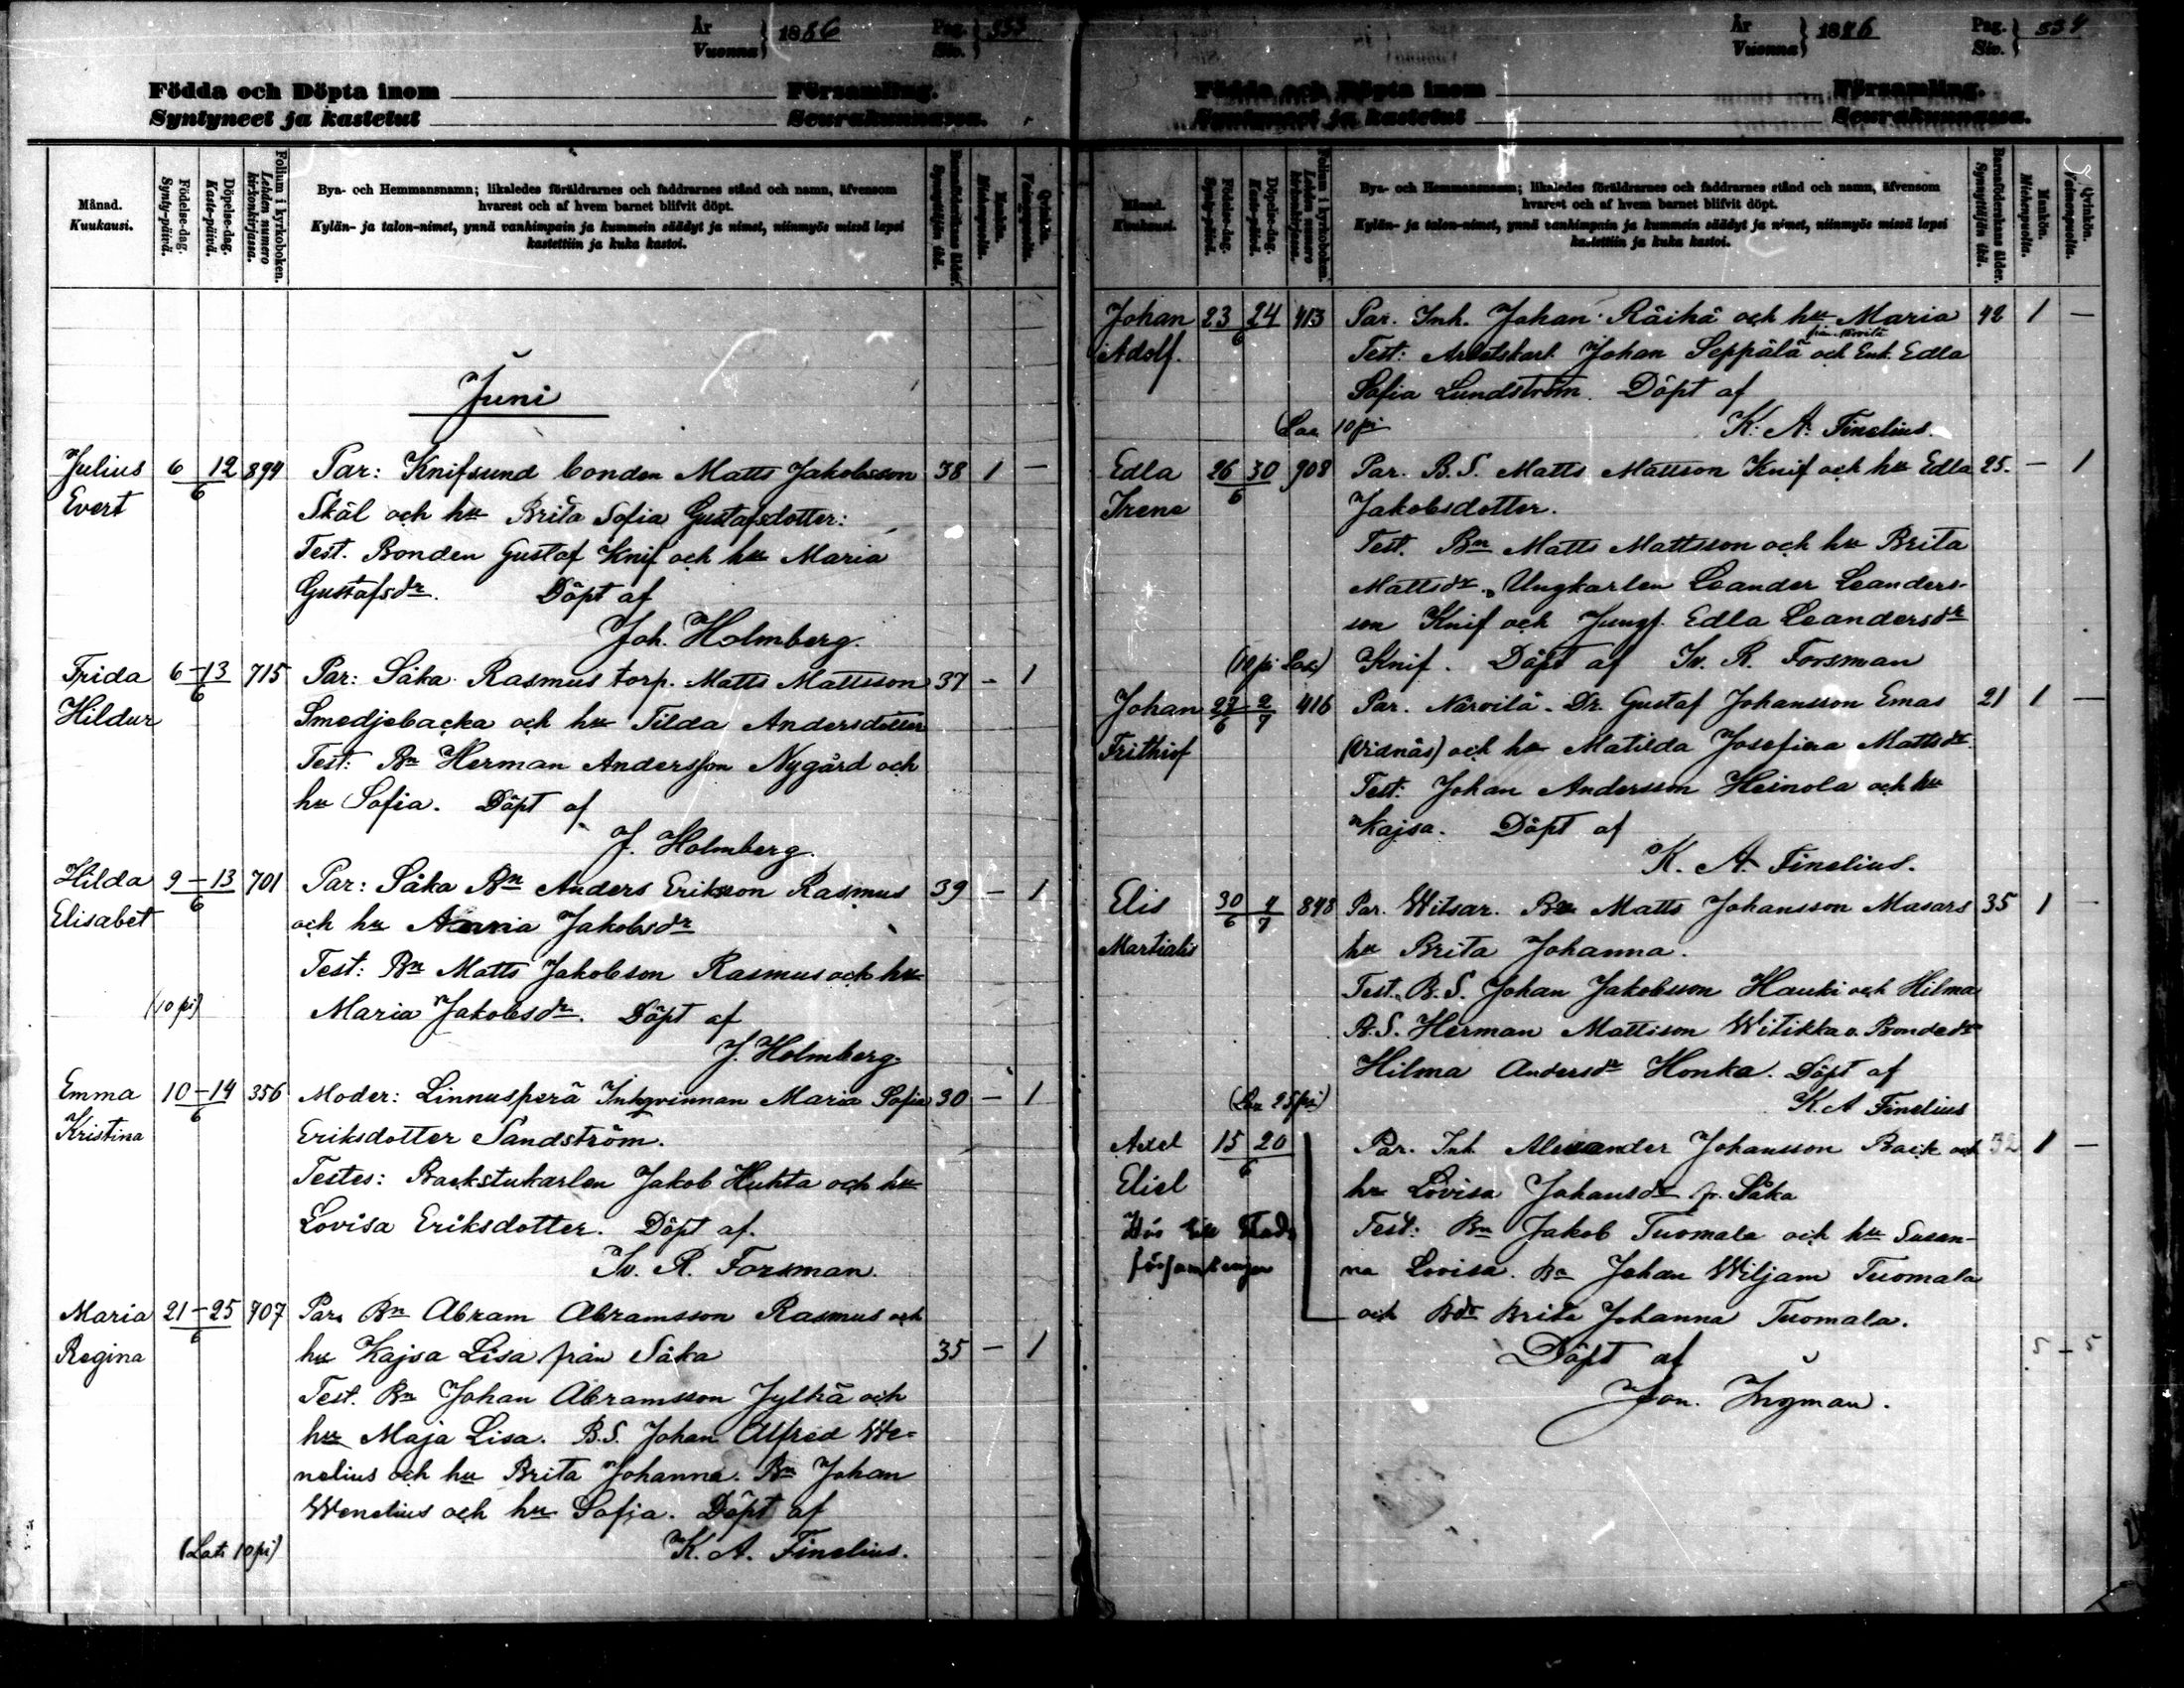 År
Vuonna } 1886 Pag.
Siv. } 533
Födda och Döpta inom Församling.
Syntyneet ja kastetut Seurakunnassa.
Månad.
Kuukausi.
Födelse-dag.
Synty-päivä.
Döpelse-dag.
Kaste-päivä.
Folium i kyrkoboken.
Lehden numero
kirkonkirjassa.
Bya- och Hemmansnamn; likaledes föräldrarnes och faddrarnes stånd och namn, äfvensom
hvarest och af hvem barnet blifvit döpt.
Kylän- ja talon-nimet, ynnä vanhimpain ja kummein säädyt ja nimet, niinmyös missä lapsi
kastettiin ja kuka kastoi.
Barnaföderskans ålder.
Synnyttäjän ikä.
Mankön.
Miehenpuolta.
Qvinkön.
Vaimonpuolta.
Juni
Julius 6 12 894 Par: Knifsund bonden Matts Jakobsson 38 1 —
Evert 6 Skäl och hu Brita Sofia Gustafsdotter:
Test. Bonden Gustaf Knif och hu Maria
Gustafsdr. Döpt af
Joh. Holmberg.
Frida 6-13 715 Par: Såka Rasmus torp. Matts Mattsson 37 - 1
Hildur 6 Smedjebacka och hu Tilda Andersdotter
Test: Bn Herman Andersson Nygård och
hu Sofia. Döpt af
J. Holmberg.
Hilda 9-13 701 Par: Såka Bn Anders Eriksson Rasmus 39 — 1
Elisabet 6 och hu Anna Jakobsdr
Test: Bn Matts Jakobson Rasmus och hu
(10 pi) Maria Jakobsdr. Döpt af
J. Holmberg.
Emma 10-14 356 Moder: Linnusperä Inhqvinnan Maria Sofia 30 — 1
Kristina 6 Eriksdotter Sandström.
Testes: Backstukarlen Jakob Huhta och hu
Lovisa Eriksdotter. Döpt af.
Iv. R. Forsman.
Maria 21-25 707 Par. Bn Abram Abramsson Rasmus och
Regina 6 hu Kajsa Lisa från Såka 35 — 1
Test. Bn Johan Abramsson Jylhä och
hu Maja Lisa. B.S. Johan Alfred We-
nelius och hu Brita Johanna. Bn Johan
Wenelius och hu Sofia. Döpt af
10 pi) K. A. Finelius.
År
Vuonna } 1886 Pag.
Siv. } 534
Födda och Döpta inom Församling.
Syntyneet ja kastetut Seurakunnassa.
Månad.
Kuukausi.
Födelse-dag.
Synty-päivä.
Döpelse-dag.
Kaste-päivä.
Folium i kyrkoboken.
Lehden numero
kirkonkirjassa.
Bya- och Hemmansnamn; likaledes föräldrarnes och faddrarnes stånd och namn, äfvensom
hvarest och af hvem barnet blifvit döpt.
Kylän- ja talon-nimet, ynnä vanhimpain ja kummein säädyt ja nimet, niinmyös missä lapsi
kastettiin ja kuka kastoi.
Barnaföderskans ålder.
Synnyttäjän ikä.
Mankön.
Miehenpuolta.
Qvinkön.
Vaimonpuolta.
Johan 23 24 413 Par. Inh. Johan Räihä och hu Maria 42 1 —
6 från Närvilä
Adolf. Test: Arbetskarl Johan Seppälä och Enk. Edla
Sofia Lundström. Döpt af
10 pi K. A. Finelius.
Edla 26 30 908 Par. B.S. Matts Mattson Knif och hu Edla 25. — 1
Irene 6 Jakobsdotter.
Test. Bn Matts Mattsson och hu Brita
Mattsdr. Ungkarlen Leander Leanders-
son Knif och Jungf. Edla Leandersdr
(10 pi Knif. Döpt af Iv. R. Forsman
Johan 27 2 416 Par. Närvilä. Dr. Gustaf Johansson Emas 21 1 —
Frithiof 6 7 (Vidnäs) och hu Matilda Josefina Mattsdr
Test: Johan Andersson Heinola och hu
Kajsa. Döpt af
K. A. Finelius.
Elis 30 4 848 Par. Witsar. Bn Matts Johansson Masars 35 1 —
Martialis 6 7 hu Brita Johanna.
Test. B.S. Johan Jakobsson Hauki och Hilma
B.S. Herman Mattsson Witikka o. Bondedr
Hilma Andersdr Honka. Döpt af
25 pi) K. A Finelius
Axel 15 20 Par. Inh. Alexander Johansson Back och 32 1 —
Eliel 6 hu Lovisa Johansdr fr. Såka
Test: Bn Jakob Tuomala och hu Susan-
församlingen na Lovisa. Bn Johan Wiljam Tuomala
och Bdr Brita Johanna Tuomala.
5 — 5
Döpt af
Jon. Ingman.